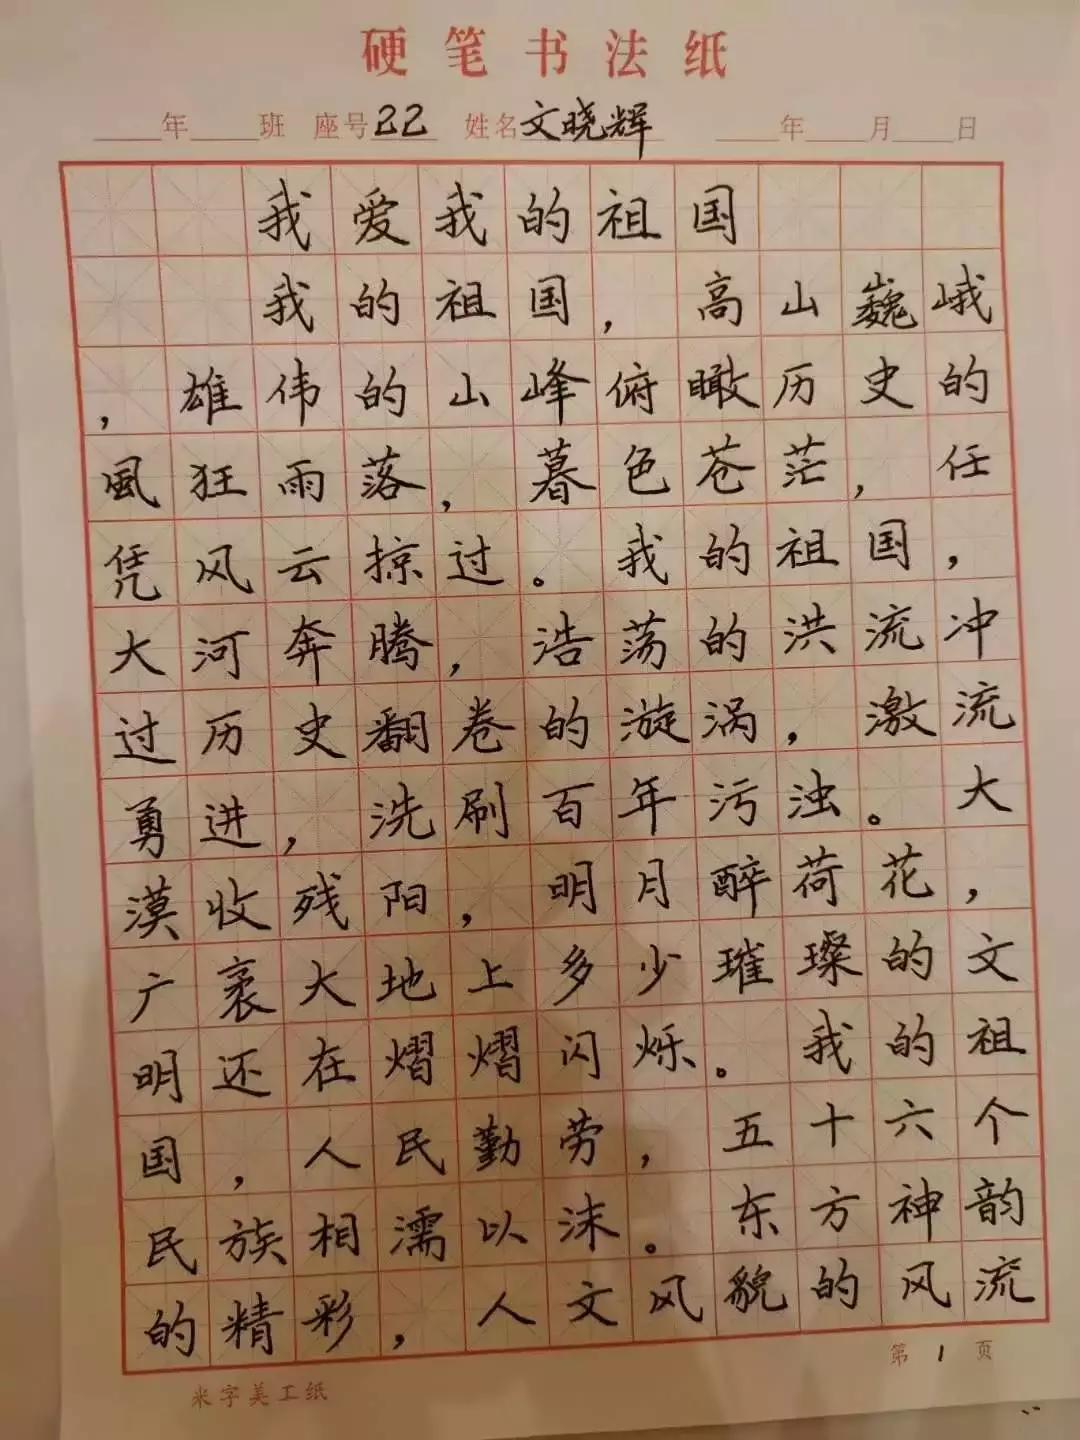 硬笔书法纸
年 班 座号22 姓名文晓辉 年 月 日
我爱我的祖国
我的祖国，高山巍峨
，雄伟的山峰俯瞰历史的
風狂雨落，暮色苍茫，任
凭风云掠过。我的祖国，
大河奔腾，浩荡的洪流冲
过历史翻卷的漩涡，激流
勇进，洗刷百年污浊。大
漠收残阳，明月醉荷花，
广袤大地上多少璀璨的文
明还在熠熠闪烁。我的祖
国，人民勤劳，五十六个
民族相濡以沫。东方神韵
的精彩，人文风貌的风流
第1页
米字美工纸